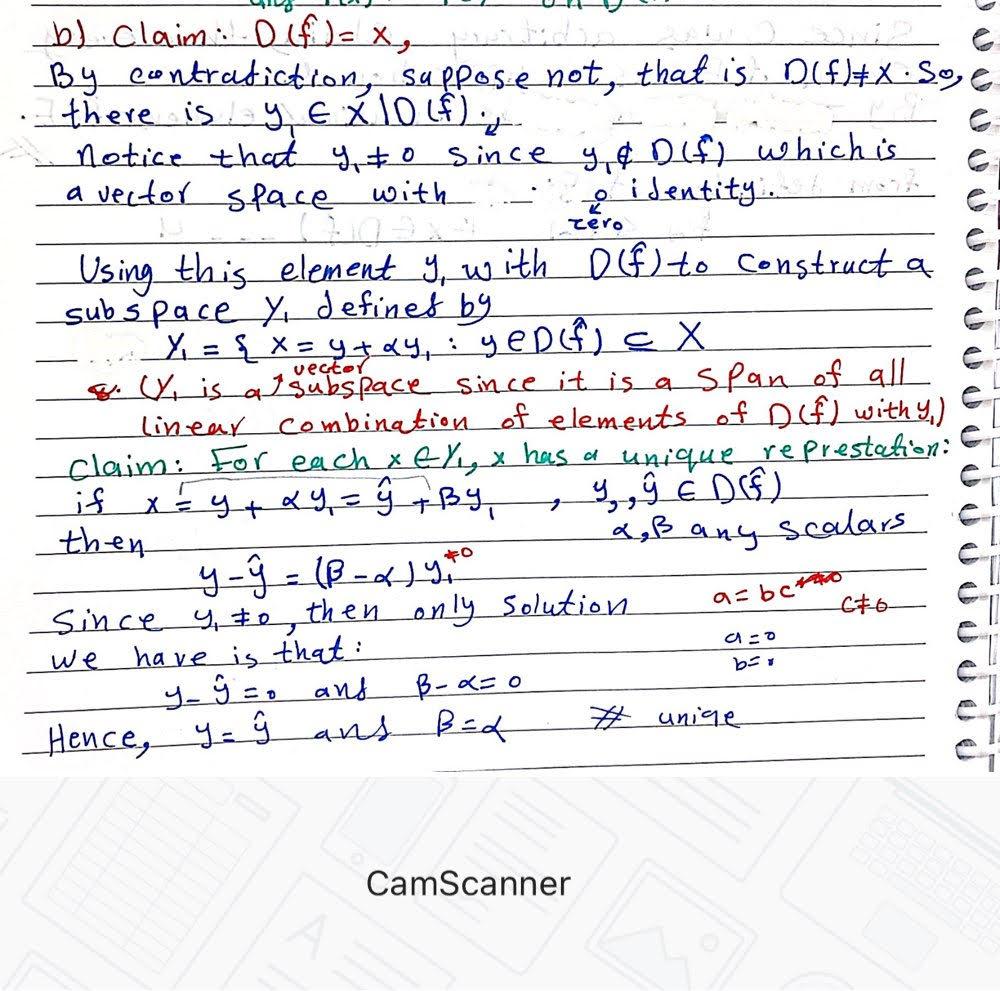 b) Claim: D(f̂) = X,
By contradiction, suppose not, that is D(f)≠X. So,
there is y₁ ∈ X \ D(f̂).
Notice that y₁ ≠ 0 since y₁ ∉ D(f̂) which is
a vector space with 0 identity.
zero
Using this element y₁ with D(f̂) to construct a
subspace Y₁ defined by
Y₁ = { x = y + αy₁ : y ∈ D(f̂) ⊆ X
vector
(Y₁ is a subspace since it is a span of all
linear combination of elements of D(f̂) with y₁)
Claim: For each x ∈ Y₁, x has a unique represtation:
if x = y + αy₁ = ŷ + βy₁ , y, ŷ ∈ D(f̂)
then α, β any scalars
y - ŷ = (β - α) y₁ ≠0
Since y₁ ≠ 0, then only solution a = bc c≠0
we have is that: a = 0
b = 0
y - ŷ = 0 and β - α = 0
Hence, y = ŷ and β = α # uniqe
CamScanner